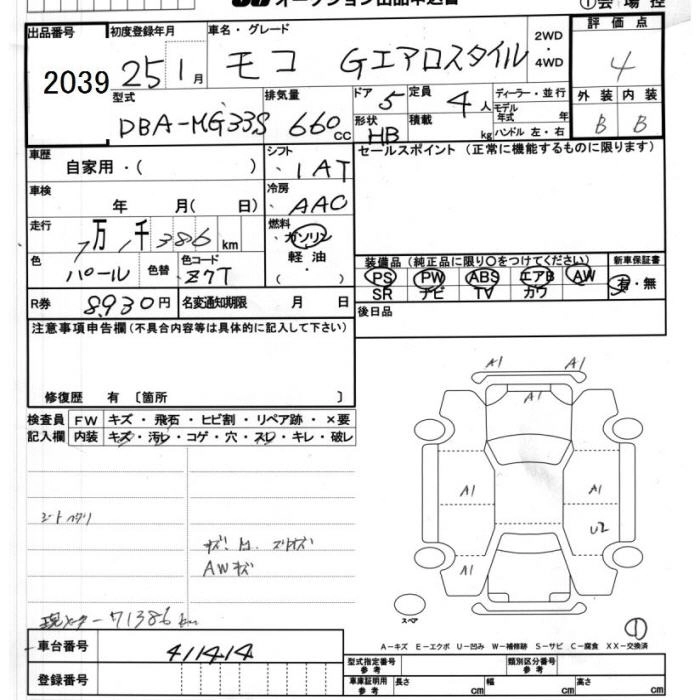 オークション出品申込書 ①会場控
出品番号 初度登録年月 車名・グレード 2WD ・ 4WD 評価点
2039 25 1月 モコ Gエアロスタイル 4
型式 排気量 ドア 5 定員 4人 ディーラー・並行 外装 内装
DBA-MG33S 660cc 形状 HB 積載 kg モデル年式 年 ハンドル 左・右 B B
車歴 自家用・( ) シフト ・IAT セールスポイント(正常に機能するものに限ります)
車検 年 月( 日) 冷房 ・AAC
走行 7万1千386km 燃料 ・ガソリン 軽油 ・( )
色 パール 色替 色コード ・Z7T
装備品(純正品に限り○をつけてください) 新車保証書
PS PW ABS エアB AW 有・無
SR ナビ TV カワ
R券 8,930円 名変通知期限 月 日 後日品
注意事項申告欄(不具合内容等は具体的に記入して下さい)
修復歴 有〔箇所 〕
検査員記入欄 FW キズ・飛石・ヒビ割・リペア跡・×要
内装 キズ・汚レ・コゲ・穴・スレ・キレ・破レ
A1 A1
A1
A1 A1
U2
A1
シートヘタリ
AWキズ
現メーター71386km
スペア
①
A-キズ E-エクボ U-凹み W-補修跡 S-サビ C-腐食 XX-交換済
車台番号 411414
登録番号
型式指定番号 参考 類別区分番号 参考
車庫証明用 参考 長さ cm 幅 cm 高さ cm